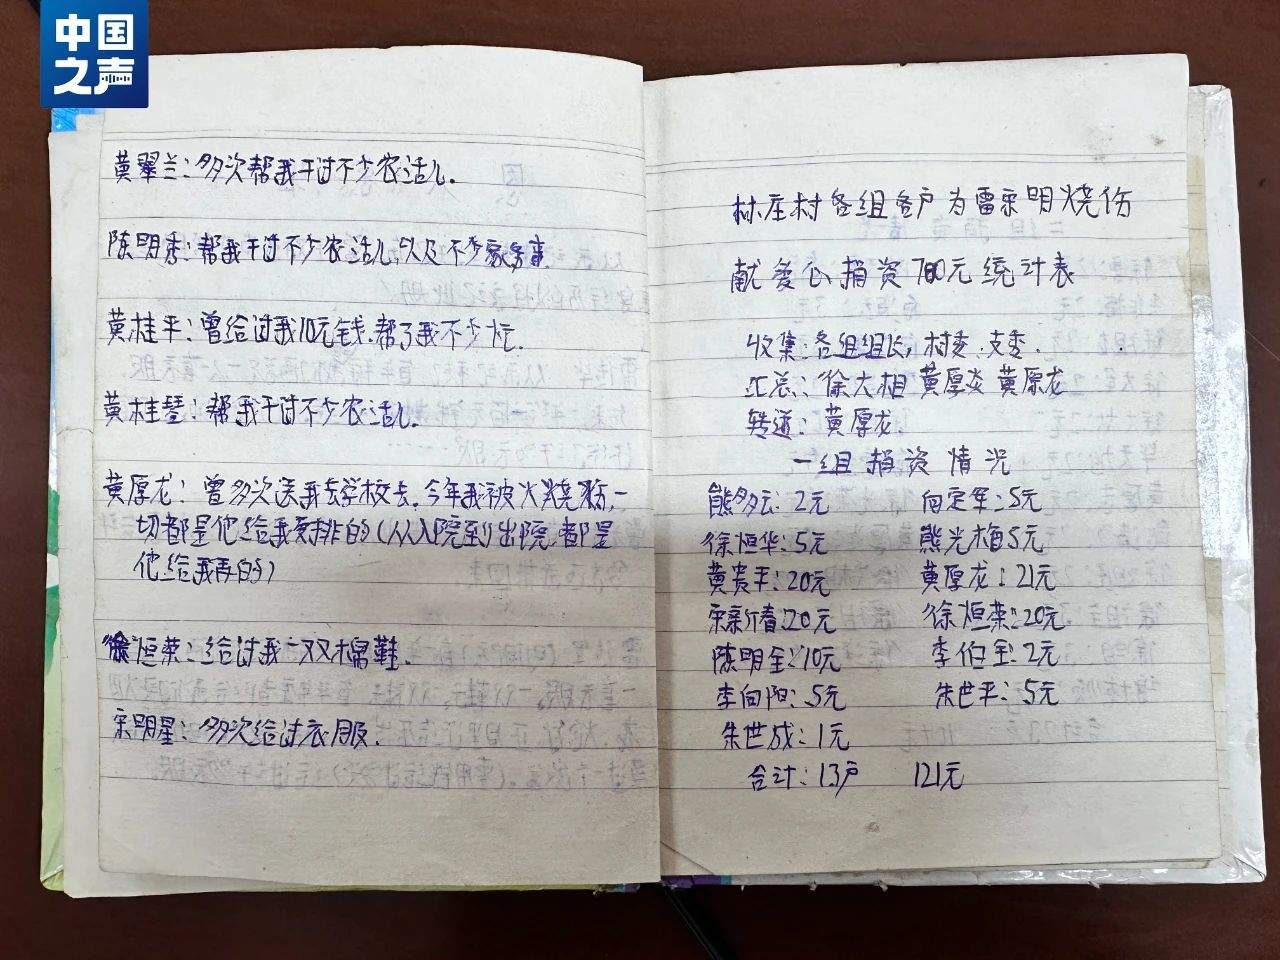 中国
之声
黄翠兰:多次帮我干过不少农活儿.
陈明秀:帮我干过不少农活儿,以及不少家务事.
黄桂平:曾给过我10元钱.帮了我不少忙.
黄桂琴:帮我干过不少农活儿.
黄厚龙:曾多次送我去学校去.今年我被火烧伤,一
切都是他给我安排的(从入院到出院.都是
他给我弄的)
徐恒荣:给过我一双棉鞋.
宋明星:多次给过衣服.
林庄村各组各户为雷宗明烧伤
献爱心捐资700元统计表
收集:各组组长,村委.支委.
汇总:徐大相 黄厚炎 黄厚龙
转递:黄厚龙.
一组捐资情况
熊多云:2元 向定军:5元
徐恒华:5元 熊光梅5元
黄贵平:20元 黄厚龙:21元
宋新春:20元 徐恒荣:20元
陈明全:10元 李伯全:2元
李向阳:5元 朱世平:5元
朱世成:1元
合计:13户 121元